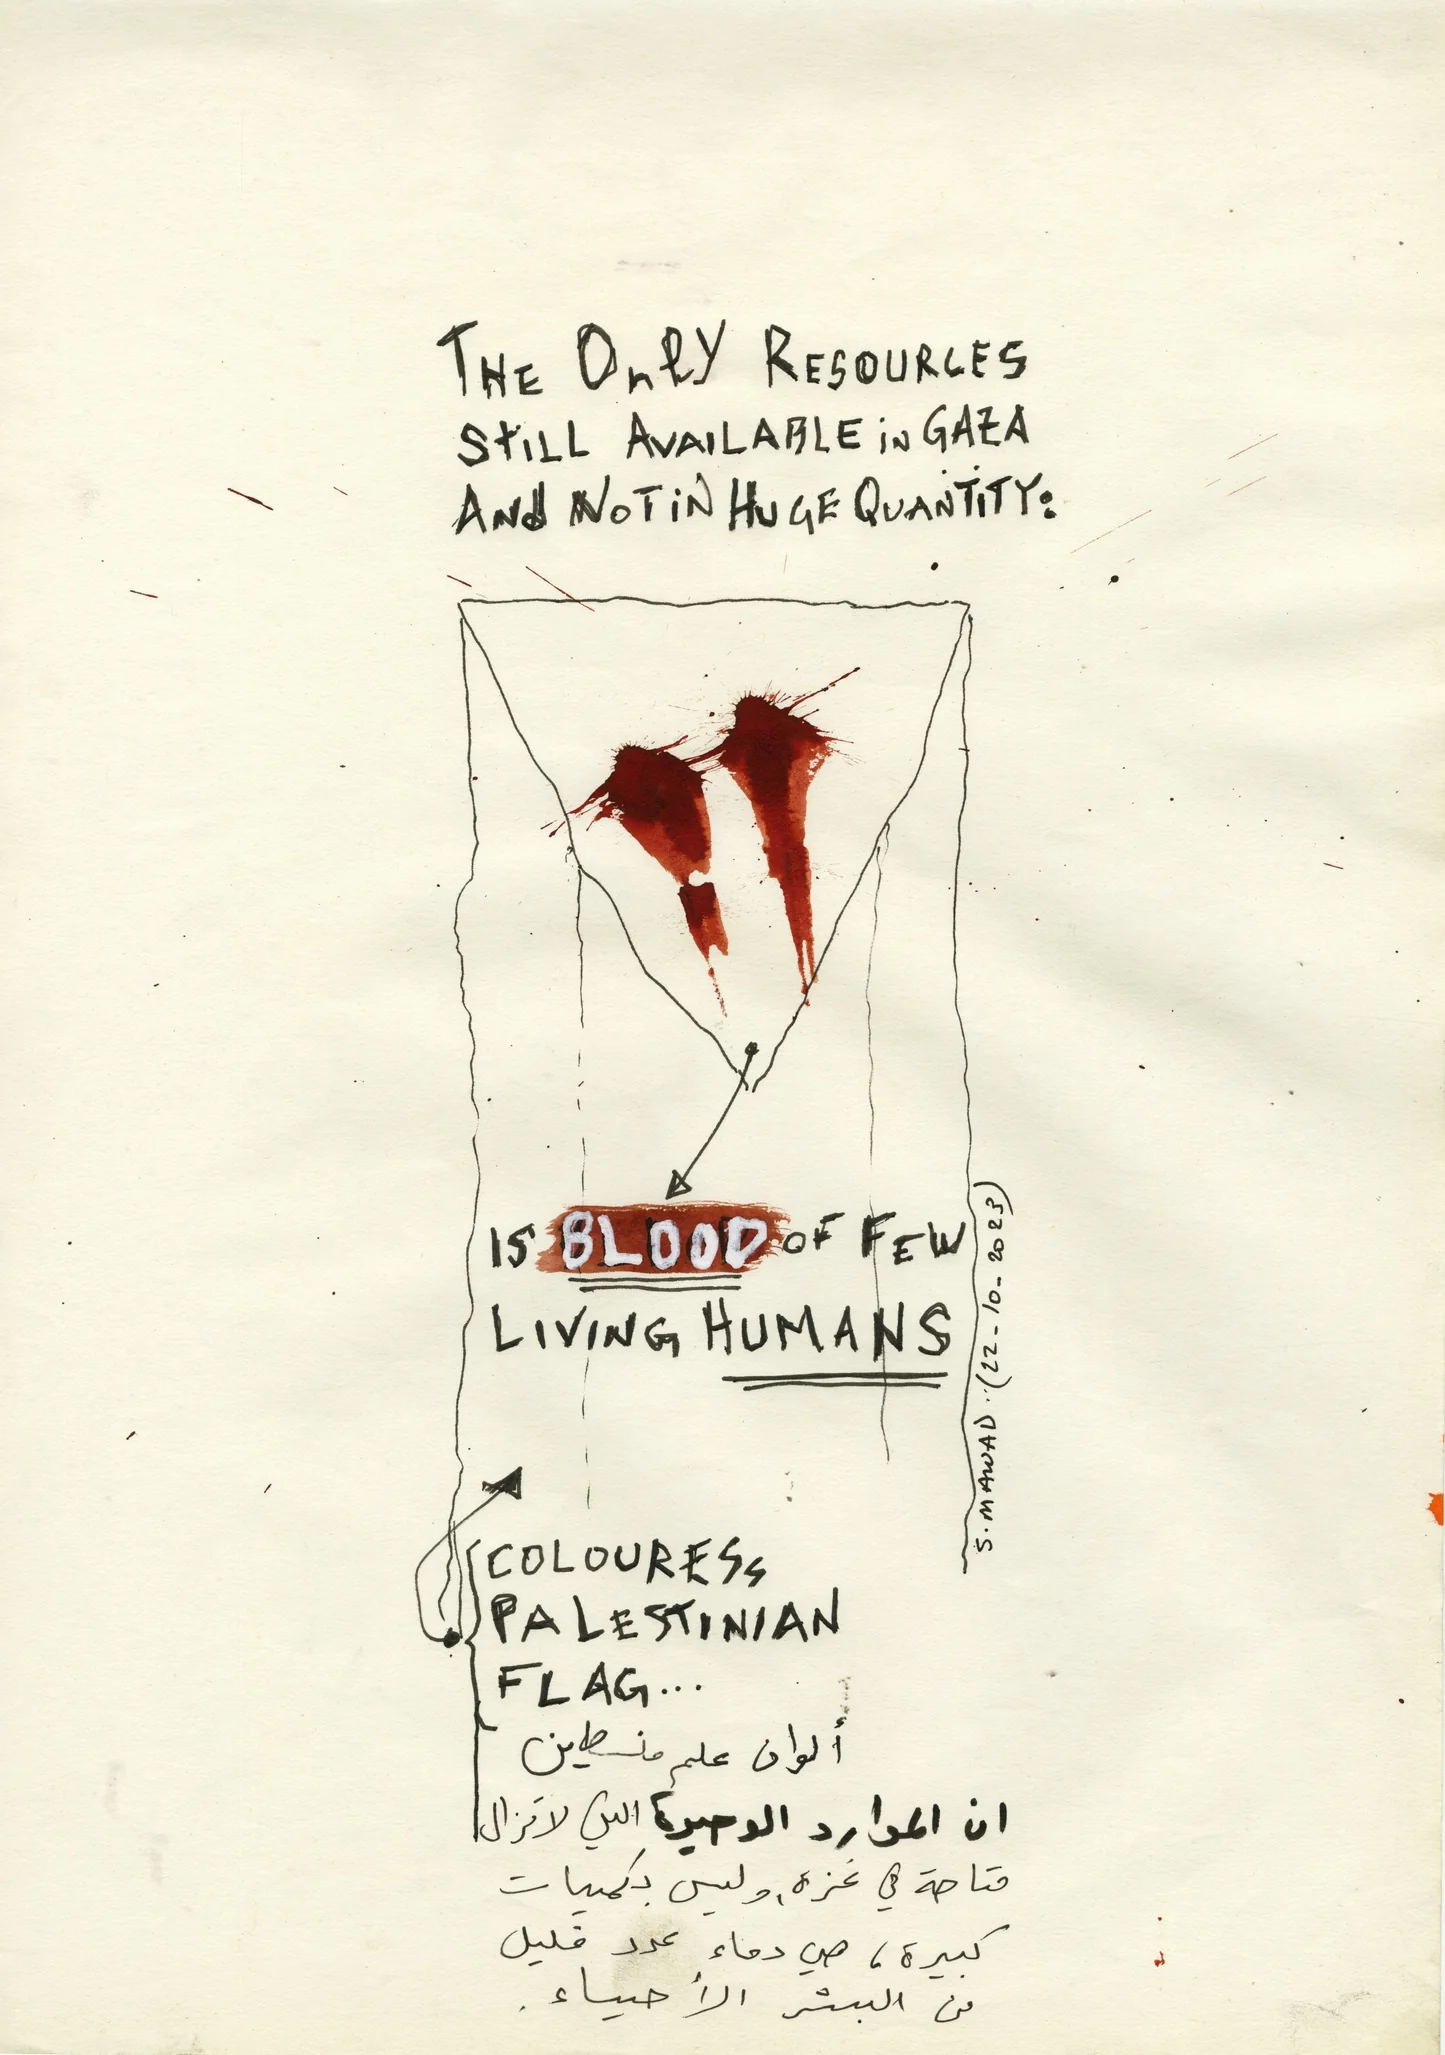 THE OnlY RESOURCES
StiLL AVAILABLE in GAZA
ANd NOT iN HUGE QUANTiTY:
IS BLOOD OF FEW
LIVING HUMANS
S. MAWAD (22-10-2023)
COLOURESs
PALESTINIAN
FLAG...
ألوان علم فلسطين
ان الموارد الوحيدة التي لا تزال
متاحة في غزة، وليس بكميات
كبيرة، هي دماء عدد قليل
من البشر الأحياء.